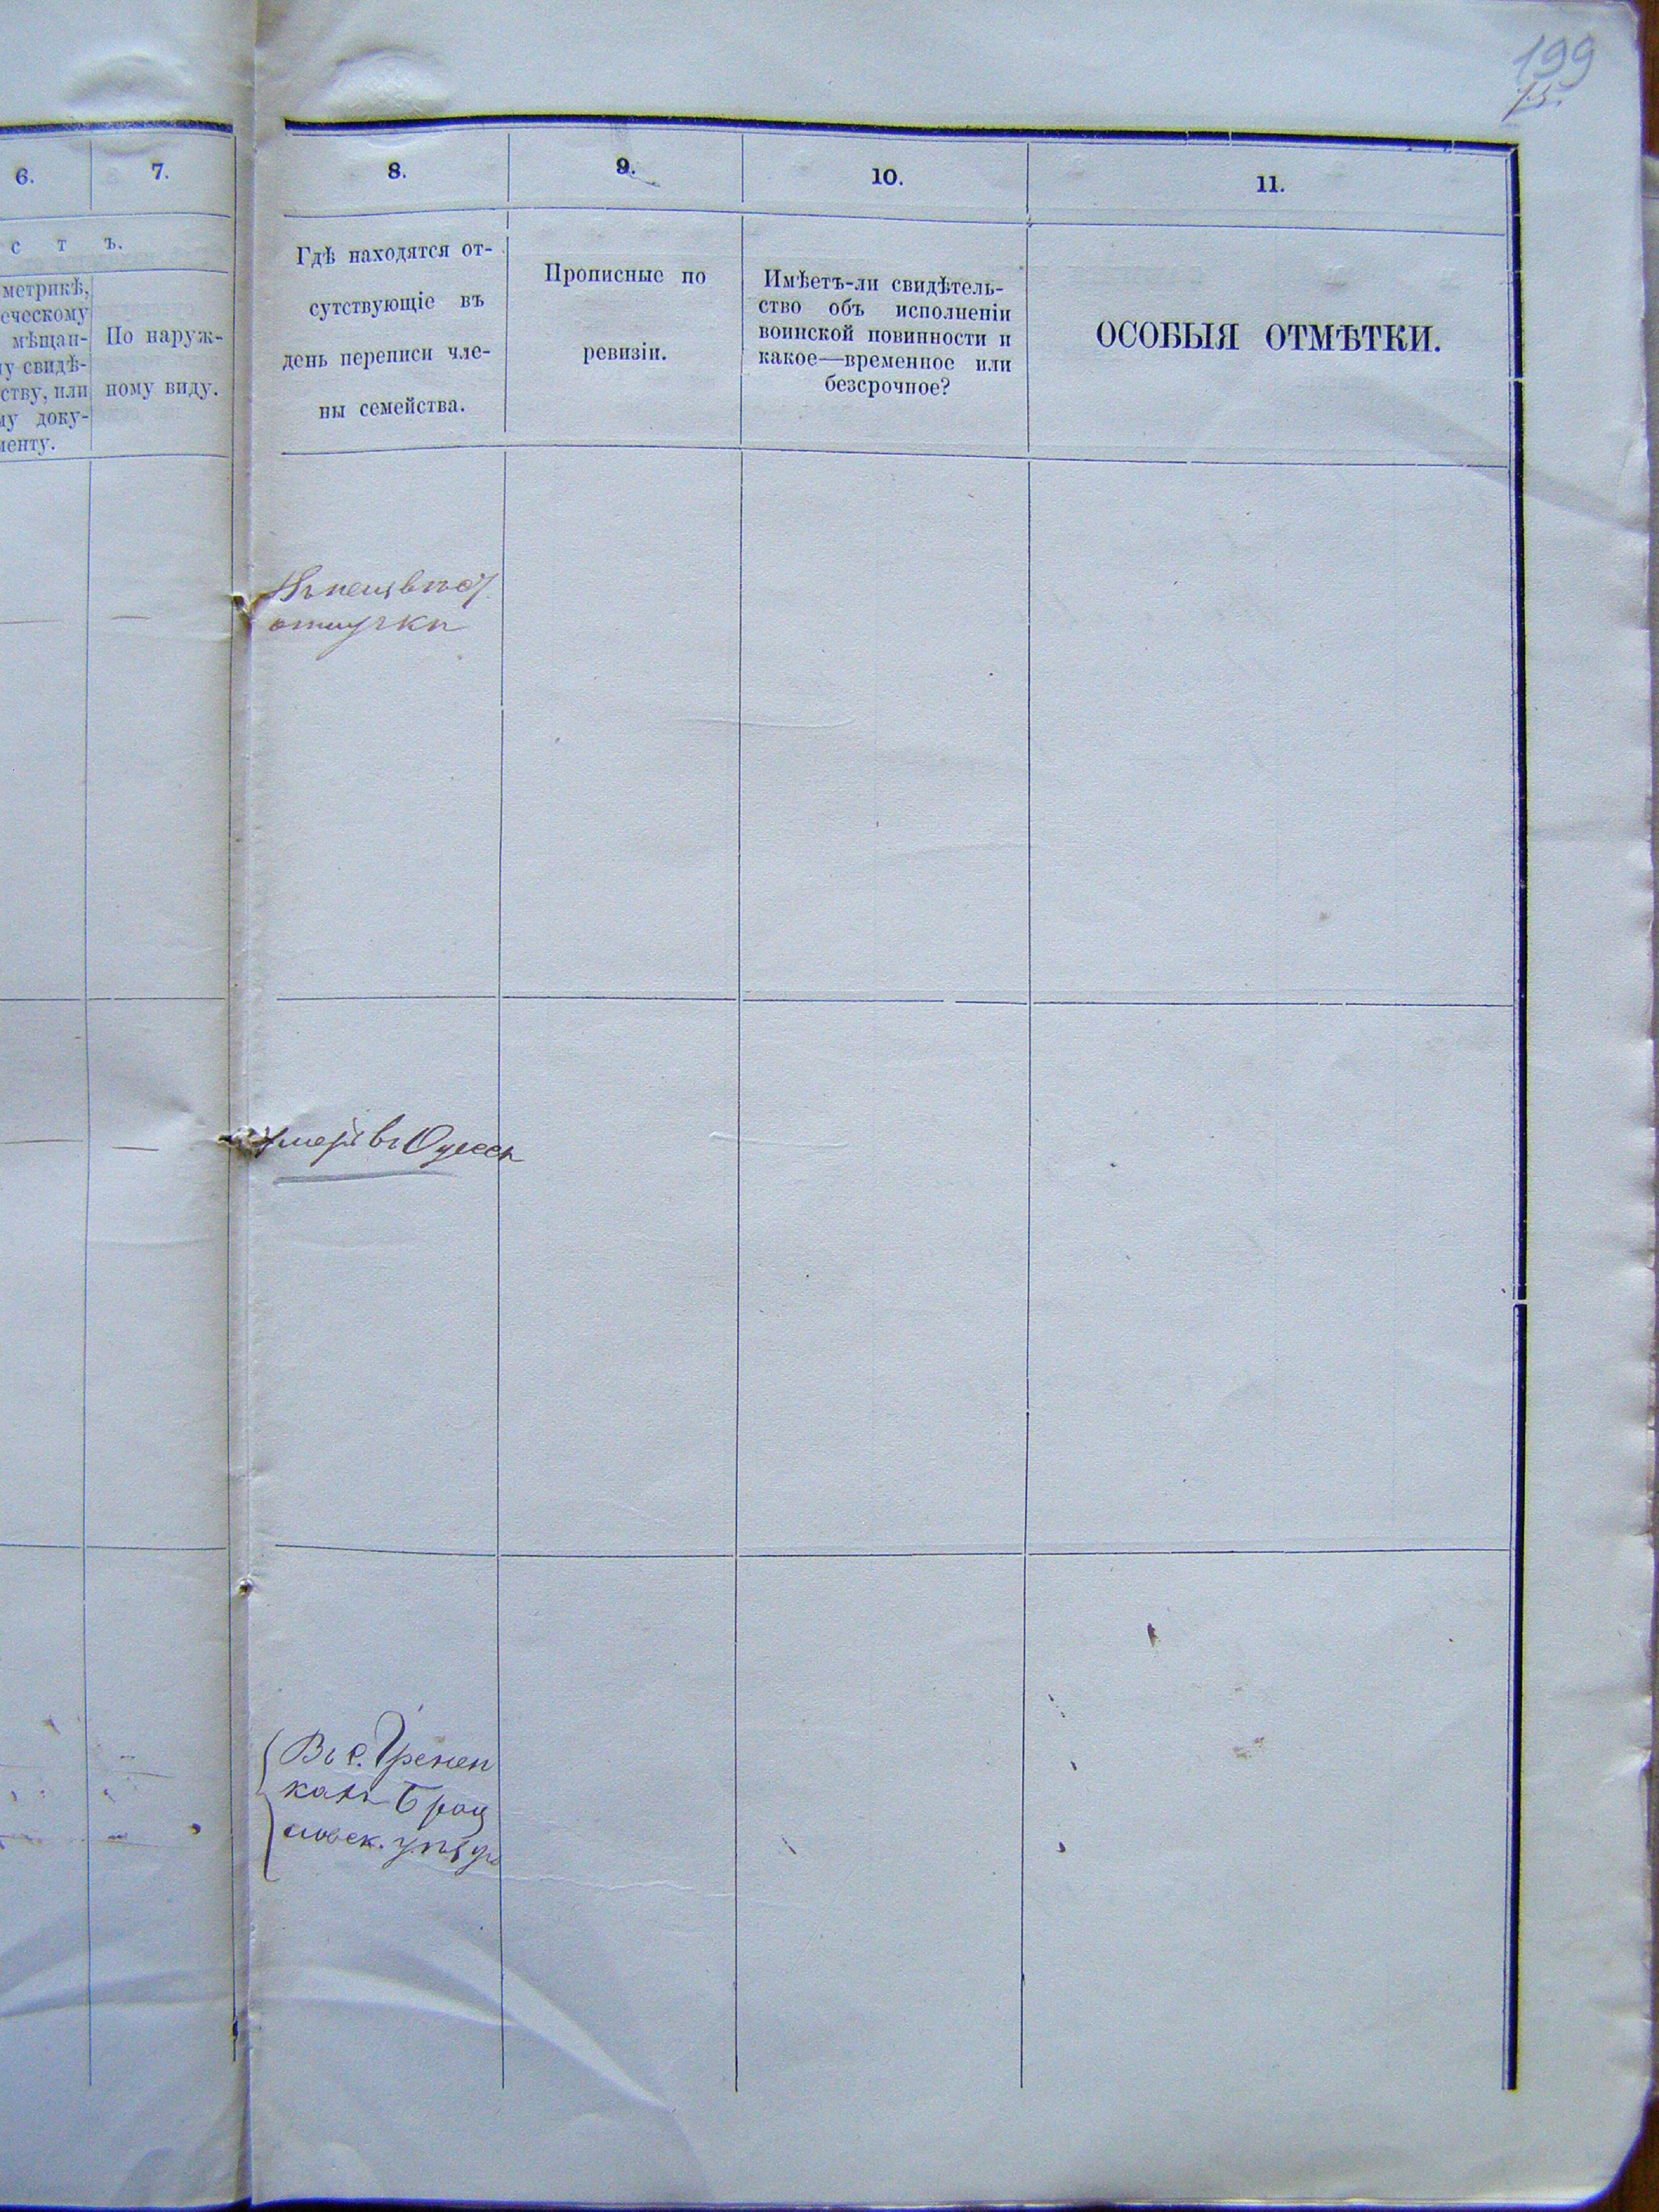 199
75.
6.
7.
8.
9.
10.
11.
с т ъ.
метрикѣ,
еческому
мѣщан-
у свидѣ-
ству, или
у доку-
менту.
По наруж-
ному виду.
Гдѣ находятся от-
сутствующіе въ
день переписи чле-
ны семейства.
Прописные по
ревизіи.
Имѣетъ-ли свидѣтель-
ство объ исполненіи
воинской повинности и
какое—временное или
безсрочное?
ОСОБЫЯ ОТМѢТКИ.
отлучкѣ
умеръ въ Одессѣ
Въ с.
кахъ Брац
лавск. уѣздѣ